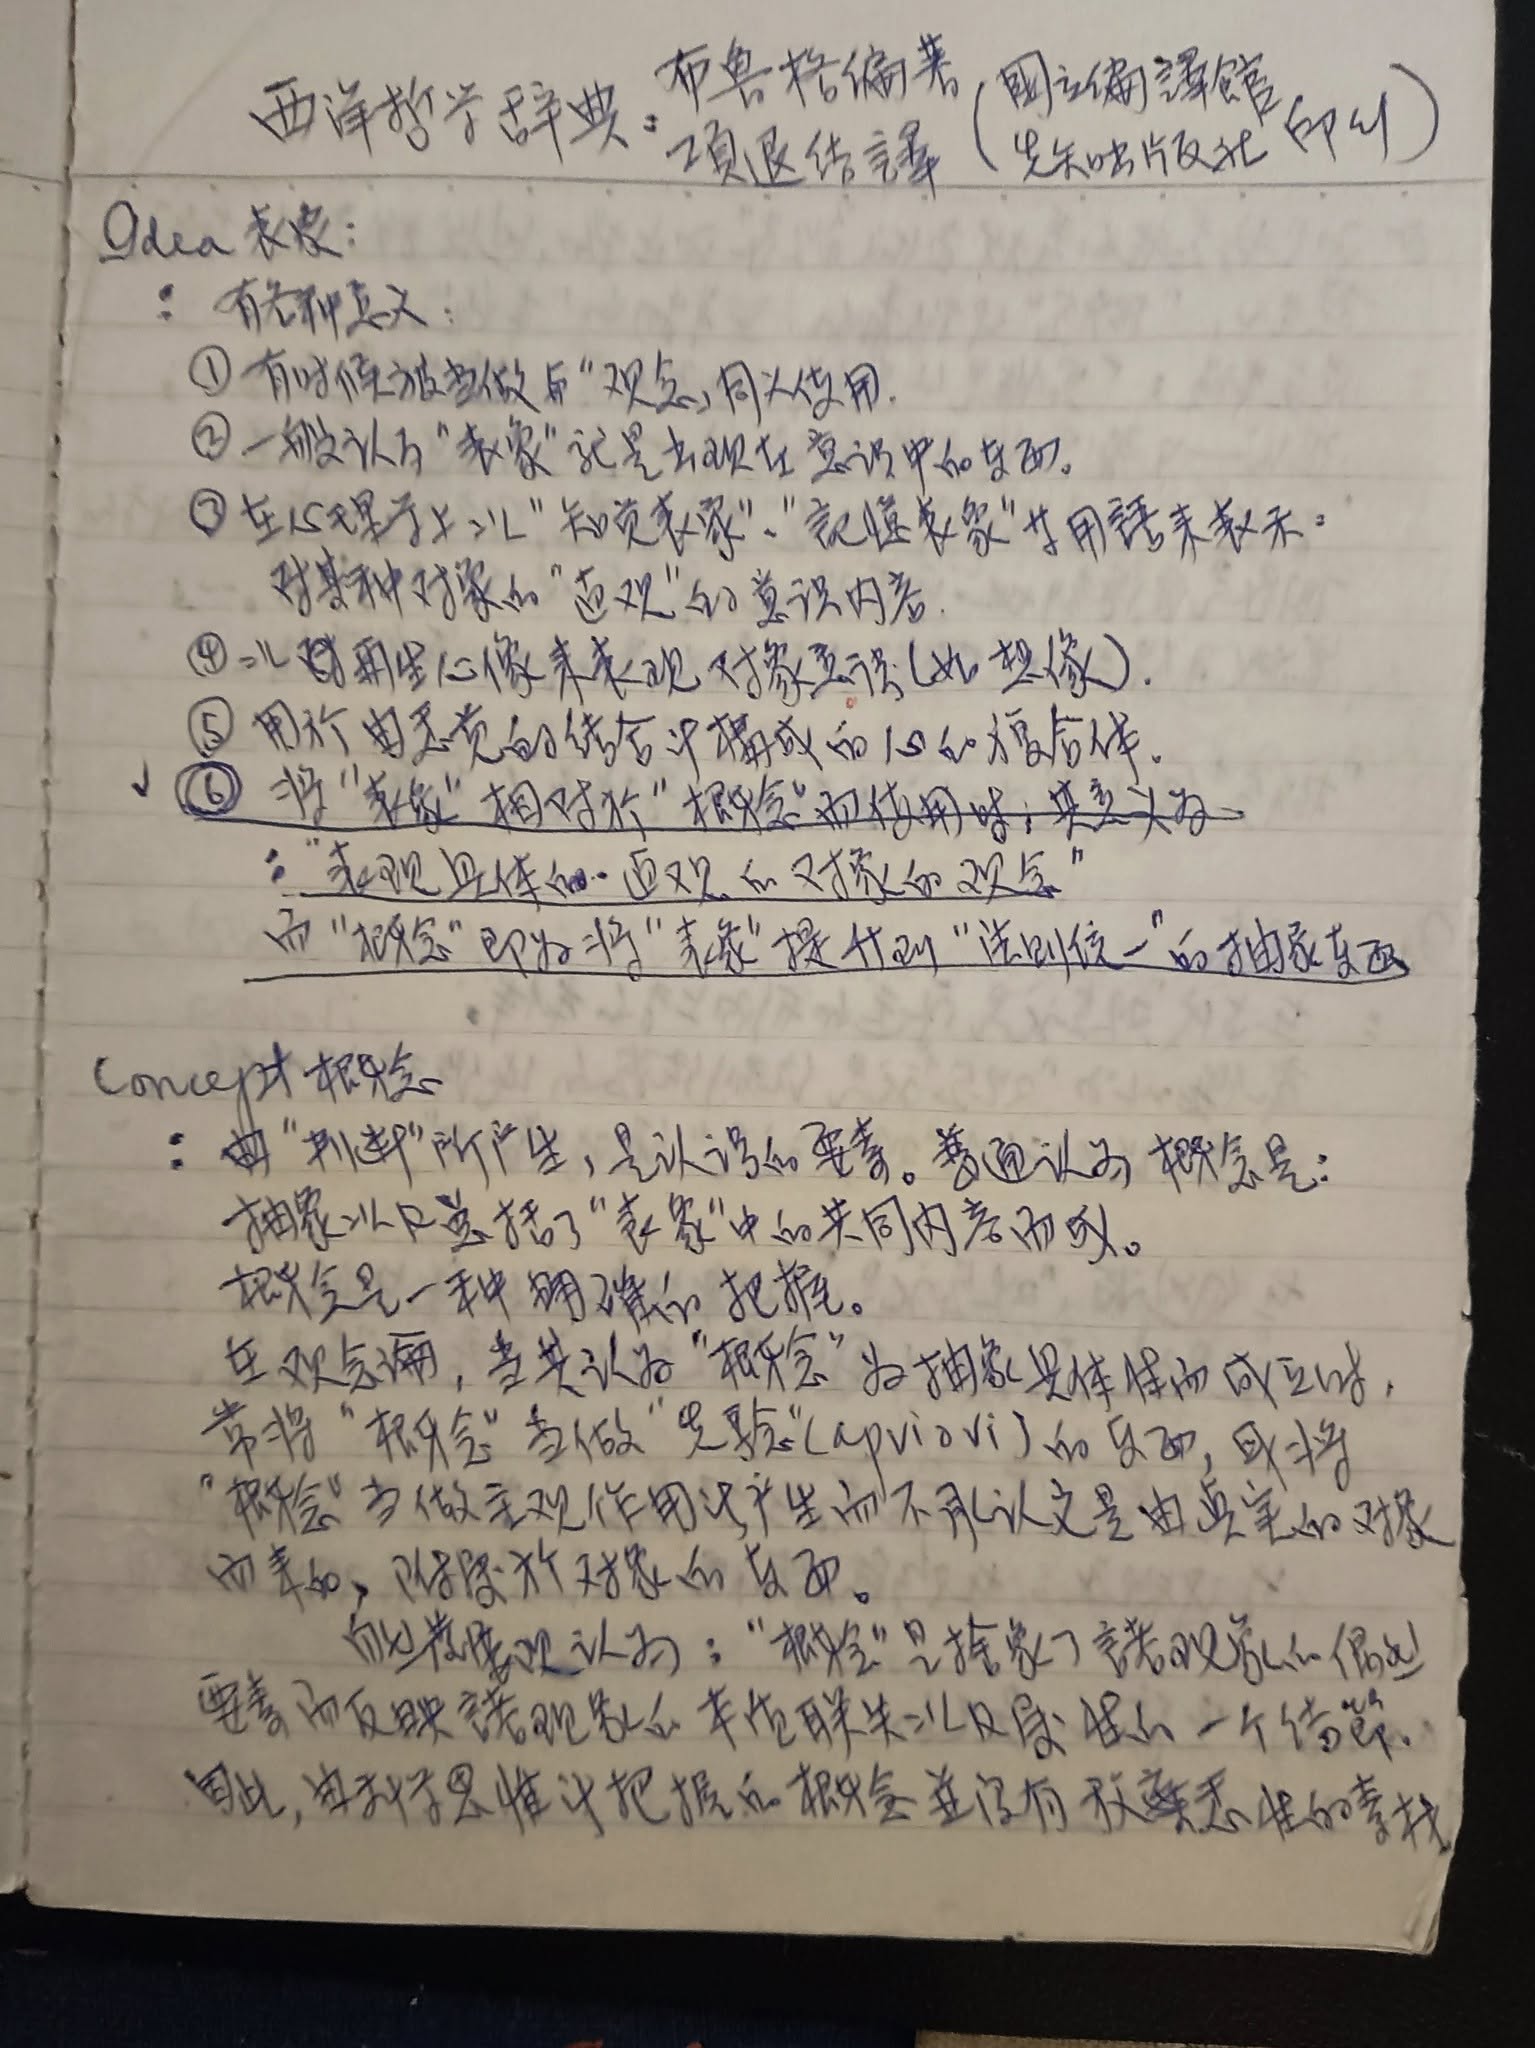 西洋哲学辞典：布魯格编著（國立編譯館
項退结譯 先知出版社 印行）
Idea 表象：
：有各种意义：
①有时候被当做与“观念”同义使用.
②一般认为“表象”就是出现在意识中的东西。
③在心理学上以“知觉表象”、“記憶表象”等用語来表示：
对某种对象的“直观”的意识内容.
④以 再生心像来表现对象意识（如想像）.
⑤用於由感觉的结合 構成的心的複合体.
✓⑥将“表象”相对於“概念”而使用时；其意义为
：“表现具体的、直观的对象的观念”
而“概念”即为将“表象”提升到“法则统一”的抽象东西
Concept 概念
：由“判断”所产生，是认识的要素。普通认为概念是：
抽象以及总括了“表象”中的共同内容而成。
概念是一种明確的把握。
在观念論，当其认为“概念”为抽象具体性而成立时，
常将“概念”当做“先験”(apriori)的东西，或将
“概念”当做主观作用 产生而不承认它是由真实的对象
而来的、附属於对象的东西。
认为：“概念”是捨象了諸现象的偶然
要素而反映諸现象的本质联关以及属性的一个结節.
因此，由科学思惟 把握的概念並没有 感性的素材